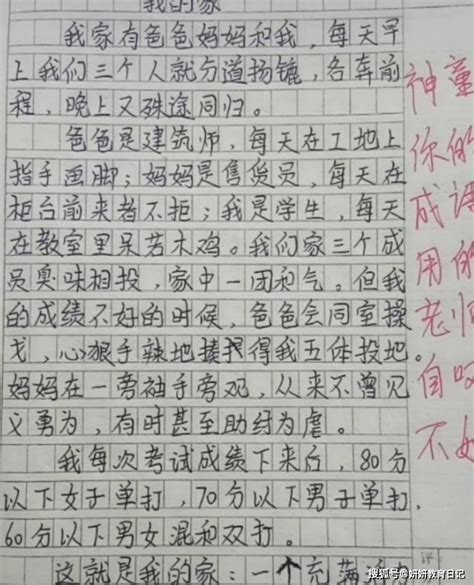 我的家
我家有爸爸妈妈和我，每天早
上我们三个人就分道扬镳，各奔前
程，晚上又殊途同归。
爸爸是建筑师，每天在工地上
指手画脚；妈妈是售货员，每天在
柜台前来者不拒；我是学生，每天
在教室里呆若木鸡。我们家三个成
员臭味相投，家中一团和气。但我
的成绩不好的时候，爸爸会同室操
戈，心狠手辣地揍得我五体投地。
妈妈在一旁袖手旁观，从来不曾见
义勇为，有时甚至助纣为虐。
我每次考试成绩下来后，80分
以下女子单打，70分以下男子单打，
60分以下男女混和双打。
这就是我的家：一个充满
神童
你的
成语
用的
老师
自叹
不如
评
搜狐号@妍妍教育日记